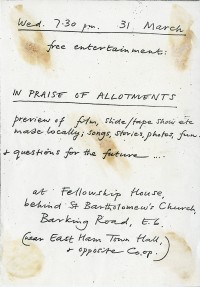 Wed. 7.30 pm. 31 March
free entertainment:
IN PRAISE OF ALLOTMENTS
preview of film, slide/tape show etc
made locally; songs, stories, photos, fun.
& questions for the future ...
at Fellowship House,
behind St Bartholomew's Church,
Barking Road, E6.
(near East Ham Town Hall,
& opposite Co.op.)